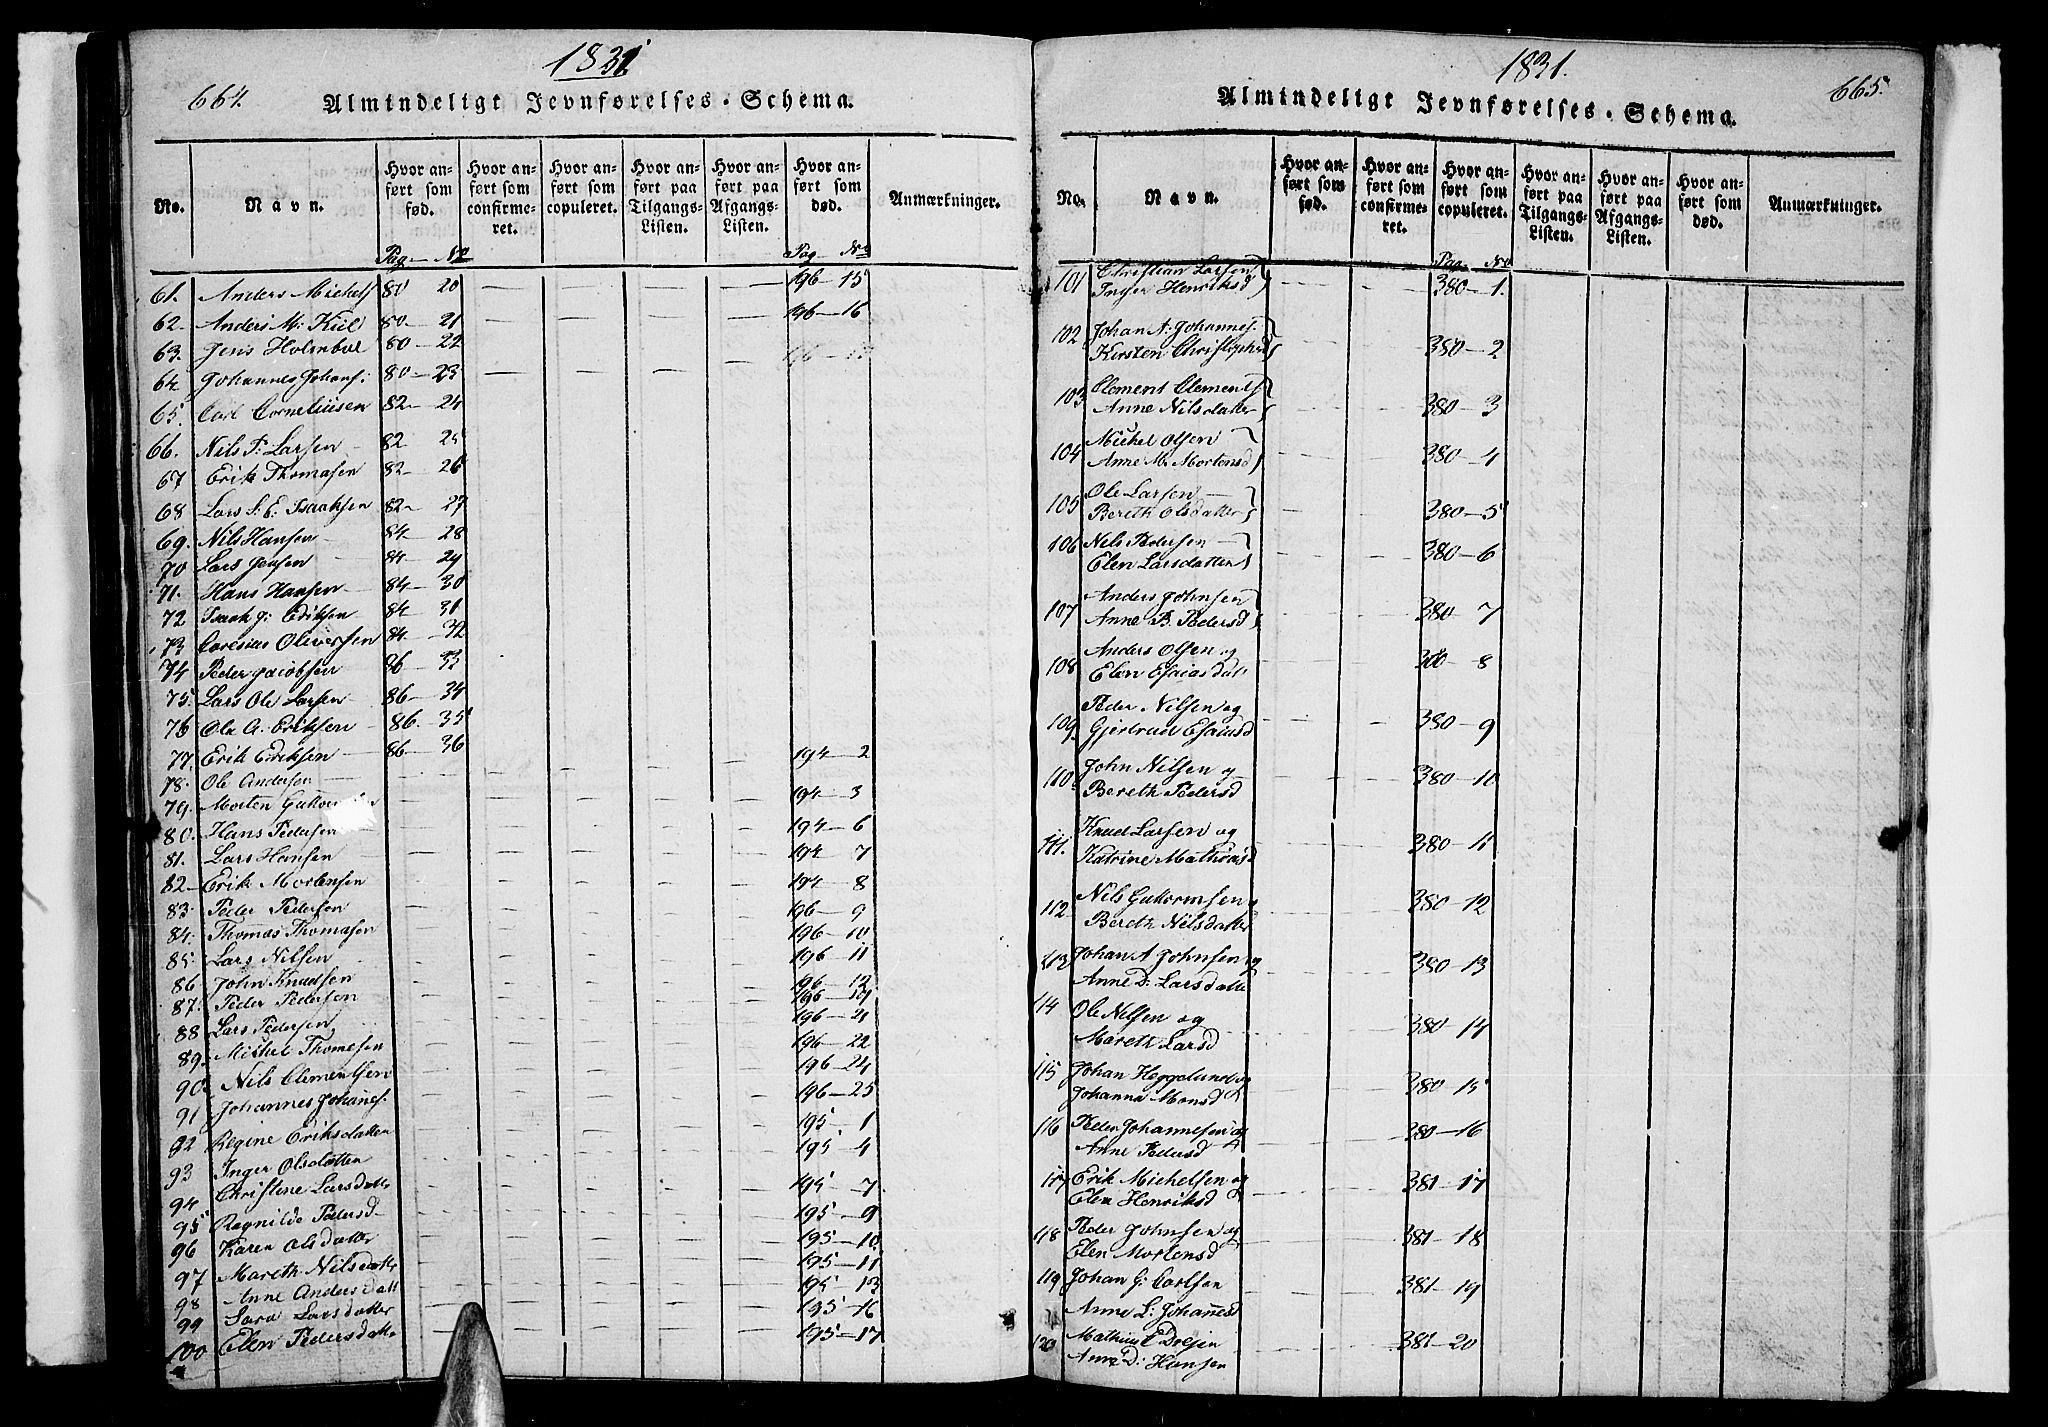 1831
664.
Almindeligt Jevnførelses-Schema.
No.
Navn.
Hvor anført som fød.
Hvor anført som confirmeret.
Hvor anført som copuleret.
Hvor anført paa Tilgangs-Listen.
Hvor anført paa Afgangs-Listen.
Hvor anført som død.
Anmærkninger.
Pag — No
Pag No
61. Anders Michels 80 20 196 — 15
62. Anders M: Kiil 80 — 21 196 — 16
63. Jens Holmboe 80 — 22
64 Johannes Johans: 80 — 23
65. Carl Corneliusen 82 — 24
66. Nils P: Larsen 82 25
67 Erik Thomasen 82 — 26
68 Lars S. E. Isaaksen 82 — 27
69. Nils Hansen 84 — 28
70 Lars Jensen 84 — 29
71. Hans Hansen 84 — 30
72 Isaak J: Eriksen 84 — 31
73 Oliversen 84 — 32
74 Peder Jacobsen 86 — 33
75. Lars Ole Larsen 86 — 34
76 Ole A. Eriksen 86. — 35
77. Erik Eriksen 86 — 36
78. Ole Andersen 194 — 2
79. Morten 194 — 3
80. Hans Pedersen 194 — 6
81. Lars Hansen 194 — 7
82 — Erik Mortensen 194 — 8
83. Peder Pedersen 196 — 9
84. Thomas Thomasen 196 — 10
85. Lars Nilsen 196 — 11
86 John Knudsen 196 — 12
87. Peder Pedersen 196 —
88 Lars Pedersen 196 — 21
89. Michel Thomesen 196 — 22
90. Nils Clementsen 196 — 24
91 Johannes Johanes. 196 — 25
92 Regine Eriksdatter 195 — 1
93 Inger Olsdatter 195 — 4
94 Christine Larsdatte 195 — 7
95 Ragnilde Pedersd 195 — 9
96 Karen Olsdatter 195 — 10
97 Mareth Nilsdatte 195 — 11
98 Anne Andersdatt 195 — 13
99 Sara Larsdatter 195 — 16
100 Elen Pedersdatte 195 — 17
1831.
665.
Almindeligt Jevnførelses-Schema.
No.
Navn.
Hvor anført som fød.
Hvor anført som confirmeret.
Hvor anført som copuleret.
Hvor anført paa Tilgangs-Listen.
Hvor anført paa Afgangs-Listen.
Hvor anført som død.
Anmærkninger.
Pag. No
101 Christian Larsen
Inger Henriksd 380 — 1.
102 Johan A: Johannes.
Kirsten Christophersd 380 — 2
103 Clement Clements
Anne Nilsdatter 380 — 3
104 Michel Olsen
Anne M. Mortensd 380 — 4
105 Ole Larsen
Bereth Olsdatter 380 — 5
106 Nils Pedersen
Elen Larsdatter 380 — 6
107 Anders Johnsen
Anne B. Pedersd 380 — 7
108 Anders Olsen og
Elen Esaiasdat. 380 — 8
109. Peder Nilsen og
Gjertrud Esaiasd 380 — 9
110 John Nilsen og
Bereth Pedersd 380 — 10
111. Knud Larsen og
Katrine Mathiasd 380 — 11
112 Nils Guttormsen og
Bereth Nilsdatter 380 — 12
113 Johan A Johnsen og
Anne D: Larsdatte 380 — 13
114 Ole Nilsen og
Mareth Larsd 380 — 14
115 Johan Heggelund og
Johanna Monsd 380 — 15
116 Peder Johannesen og
Anne Pedersd 380 — 16
117 Erik Michelsen og
Elen Henriksd 381 — 17
118 Peder Johnsen og
Elen Mortensd 381 — 18
119 Johan G: Carlsen
Anne L: Johannesd 381 — 19
120 Mathias E Dresen
Anne D: Hansen 381 — 20